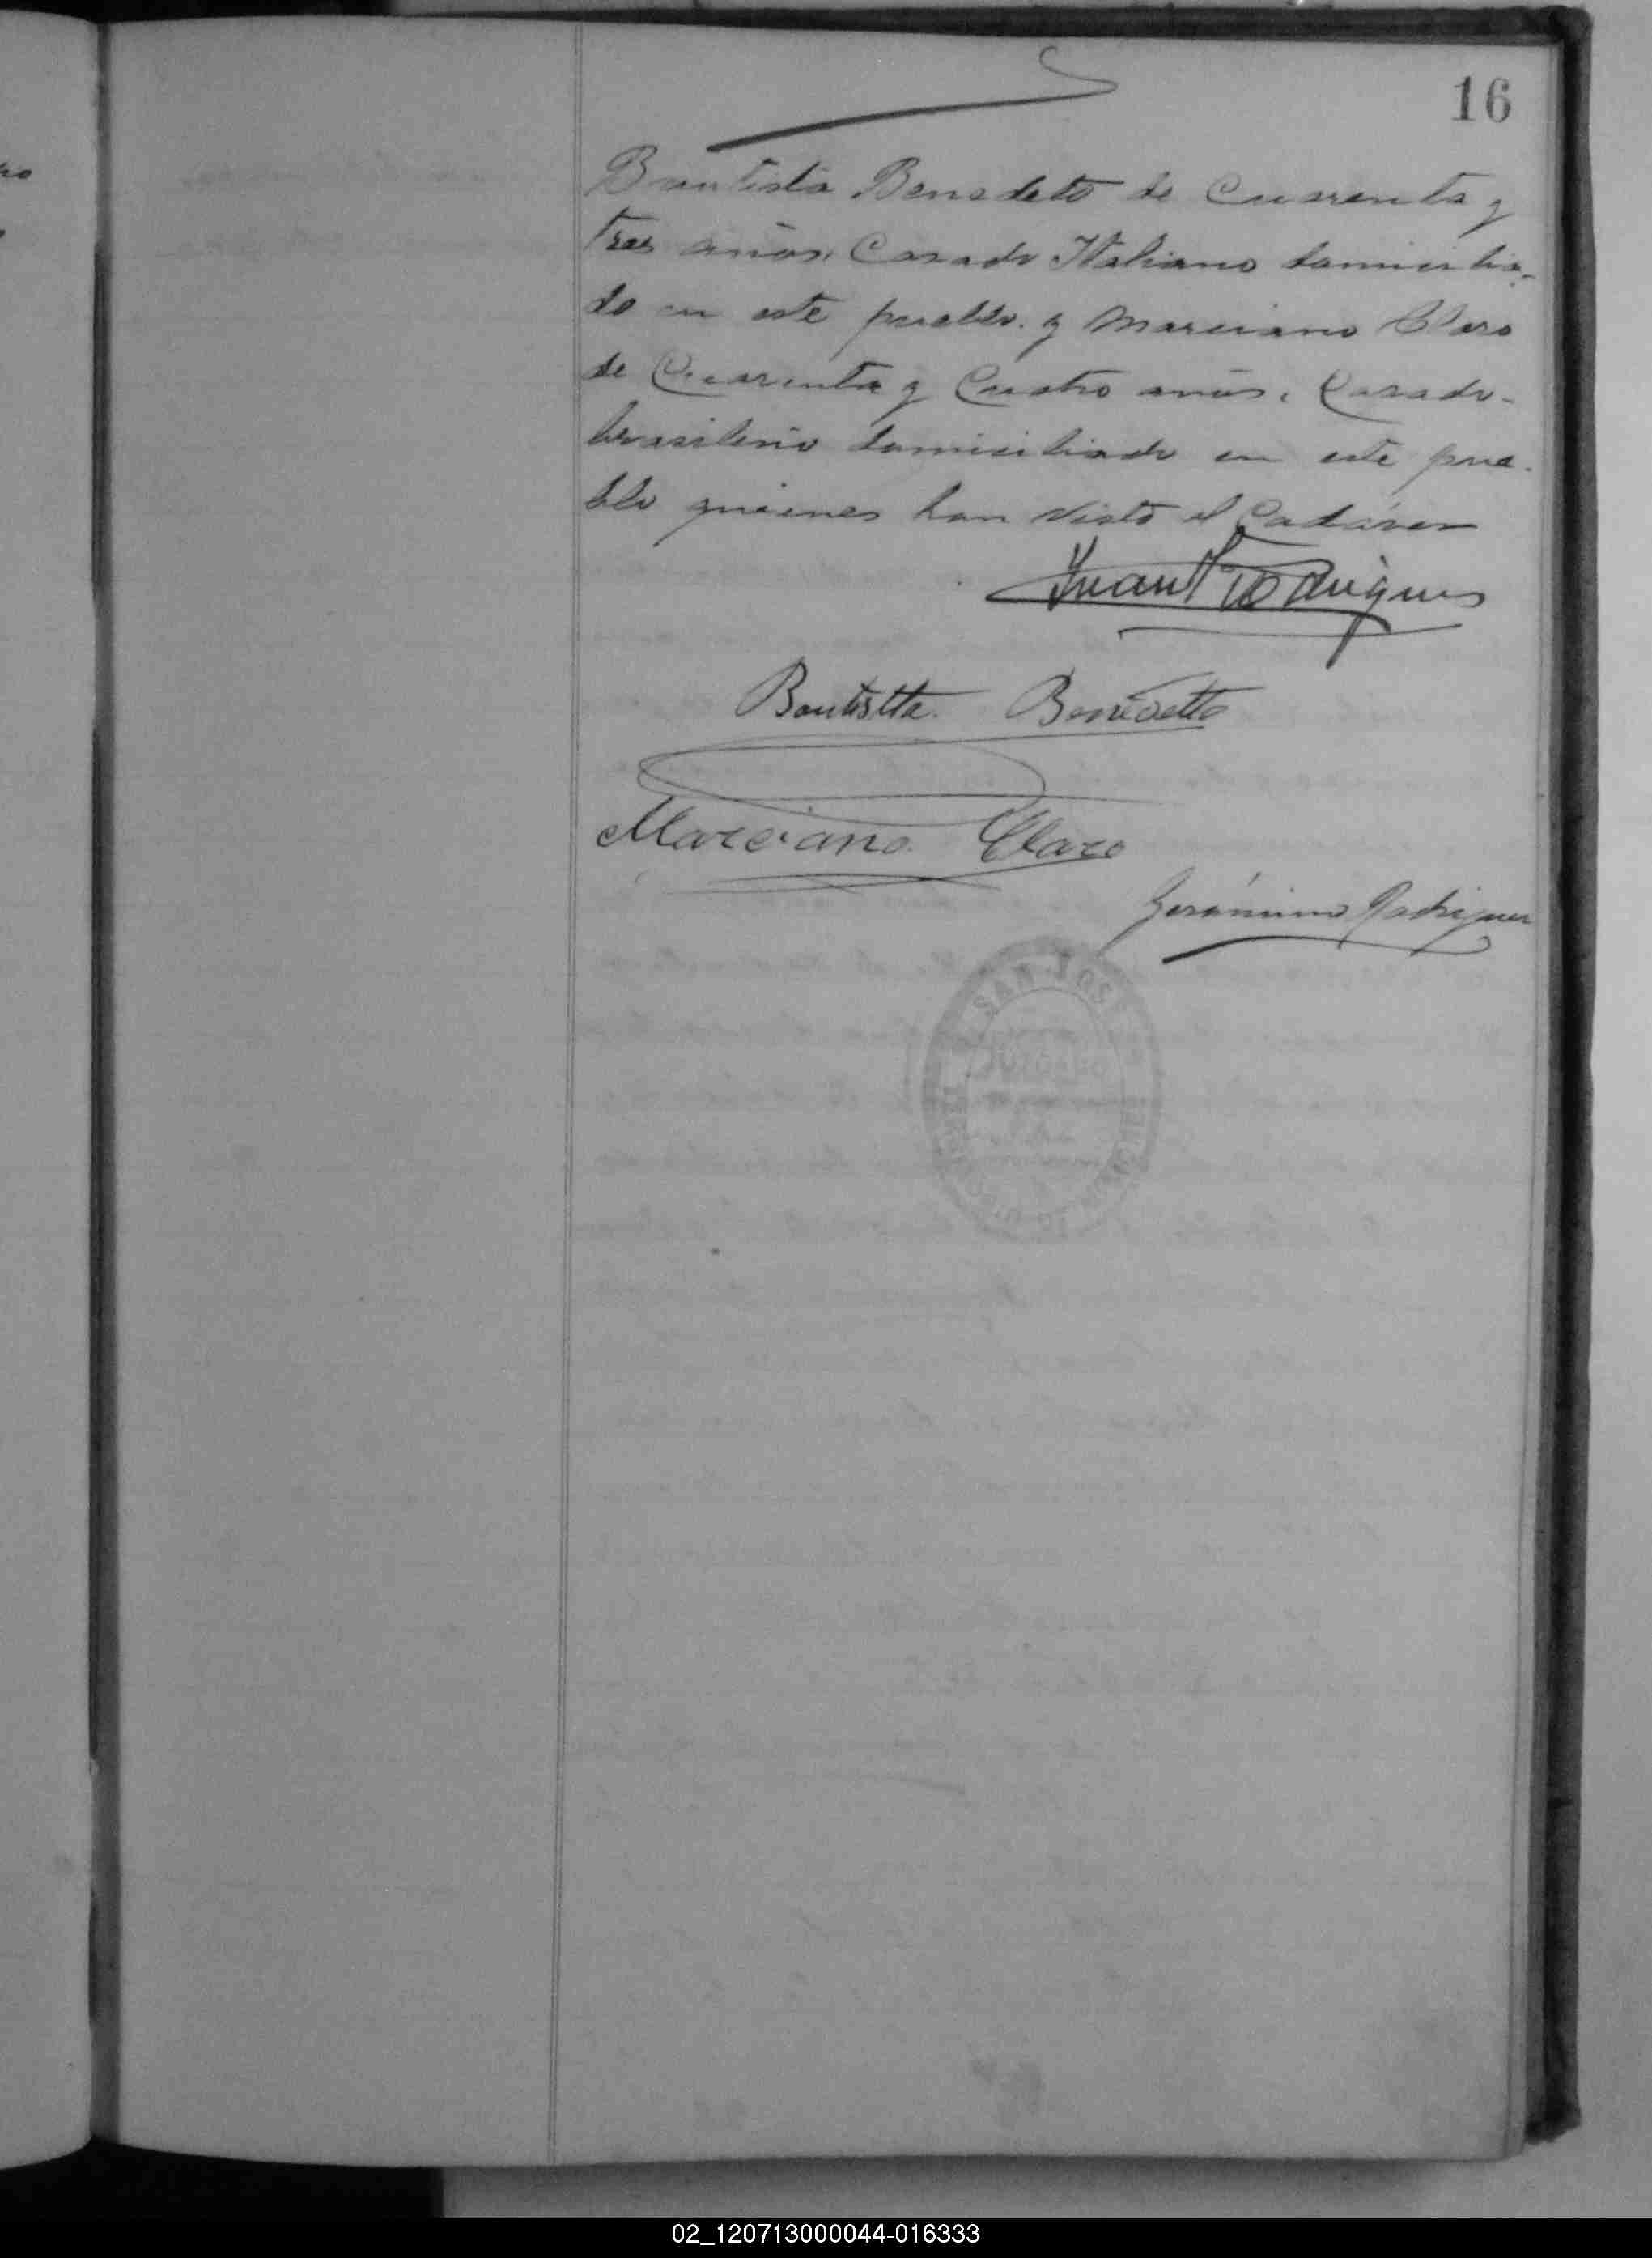 16
Bautista Benedeto de Cuarenta y
tres años, Casado Italiano domicilia-
do en este pueblo. y Marciano Claro
de Cuarenta y Cuatro años, Casado-
brasilerio domiciliado en este pue-
blo quienes han visto el Cadáver
Juan Rodrigues
Bautistta. Benedetto
Marciano. Claro
Gerónimo Rodriguez
SAN JOSÉ
JUZGADO
02_120713000044-016333